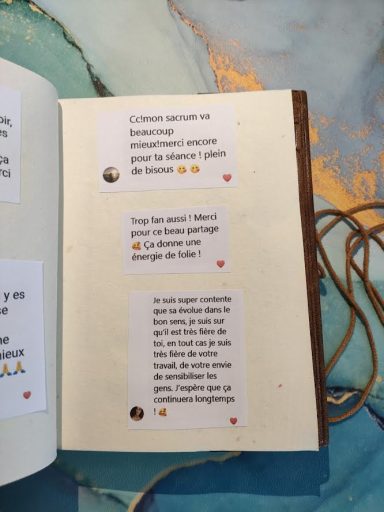 oir,
es
ça
rci
y es
se
ne
nieux
🙏🙏
Cc!mon sacrum va
beaucoup
mieux!merci encore
pour ta séance ! plein
de bisous 😘 😘
Trop fan aussi ! Merci
pour ce beau partage
🥰 Ça donne une
énergie de folie !
Je suis super contente
que sa évolue dans le
bon sens, je suis sur
qu'il est très fière de
toi, en tout cas je suis
très fière de votre
travail, de votre envie
de sensibiliser les
gens. J'espère que ça
continuera longtemps
! 🥰